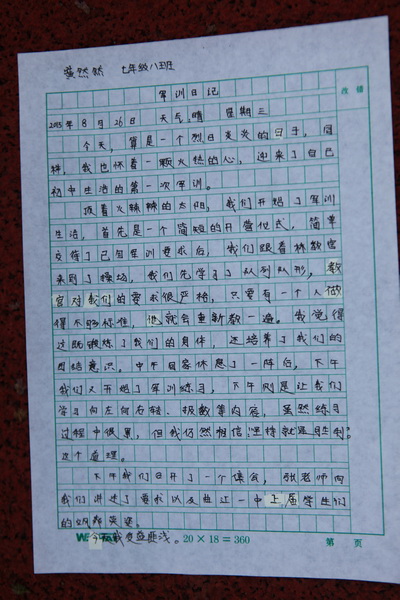 黄然然 七年级八班
军训日记
改错
2015年8月26日 天气:晴 星期三
今天,算是一个烈日炎炎的日子,同
样,我也怀着一颗火热的心,迎来了自己
初中生活的第一次军训。
顶着火辣辣的太阳,我们开始了军训
生活,首先是一个简短的开营仪式,简单
交待了已知军训要求后,我们跟着林教官
来到了操场,我们先学习了队列队形,教
官对我们的要求很严格,只要有一个人做
得不够标准,他就会重新教一遍。我觉得
这既锻炼了我们的身体,还培养了我们的
团结意识,中午回家休息了一阵后,下午
我们又开始了军训练习,下午则是让我们
学习向左向右转、报数等内容,虽然练习
过程中很累,但我仍然相信“坚持就是胜利”
这个道理。
下午我们召开了一个集会,张老师向
我们讲述了要求以及曲江一中上届学生们
的飒爽英姿。
今天我受益匪浅。
20×18=360
第 页